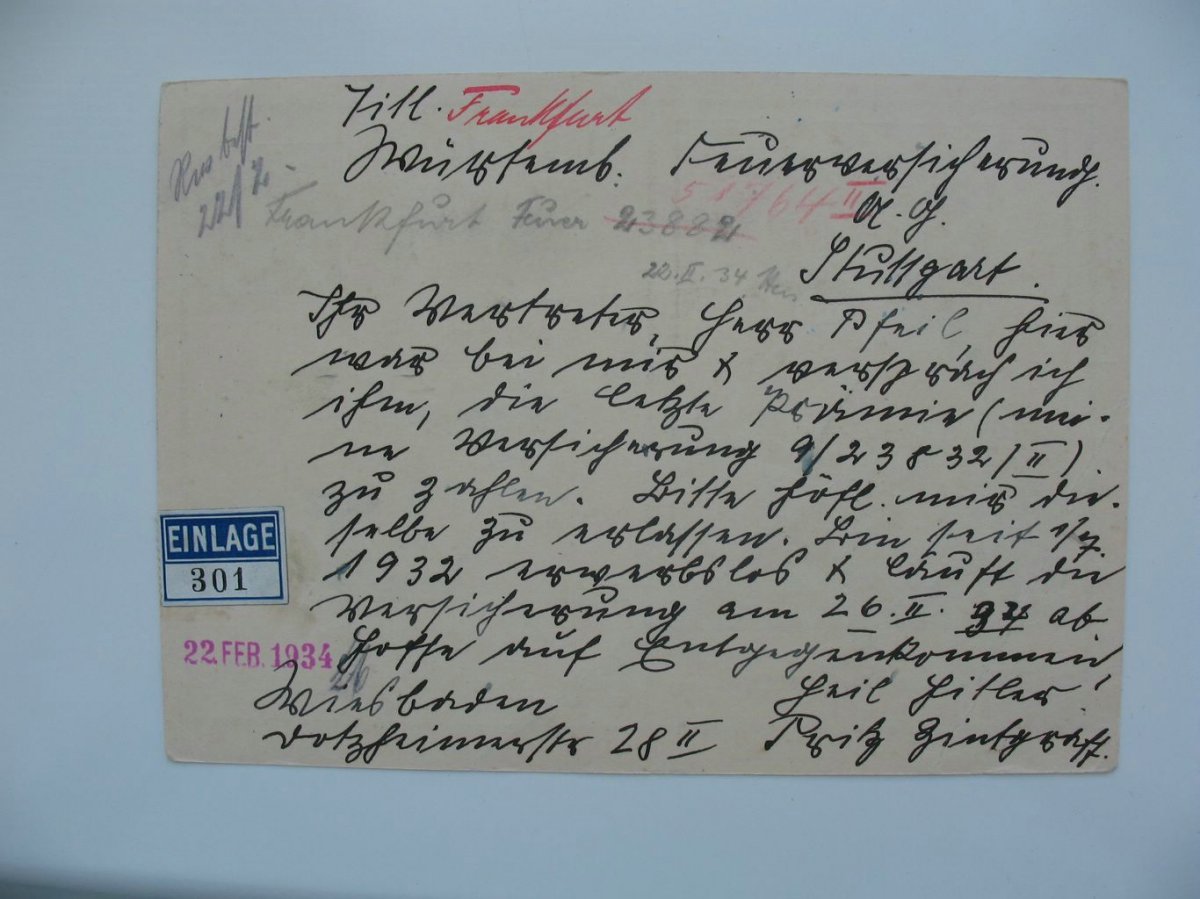 Titl. Frankfurt
Württemb. Feuerversicherung.
51764 II
A. G.
22/2.
Frankfurt Feuer 23882
22.II.34
Stuttgart.
Ihr Vertreter, Herr Pfeil, hier
war bei mir & versprach ich
ihm, die letzte Prämie (mei-
ne Versicherung 9/23832/II)
zu zahlen. Bitte höfl. mir die-
selbe zu erlassen. Bin seit 1/7.
1932 erwerbslos & läuft die
Versicherung am 26.II. 34 ab
Hoffe auf Entgegenkommen
EINLAGE
301
22.FEB.1934
Heil Hitler!
Wiesbaden
Dotzheimerstr 28 II Fritz Zintgraff.